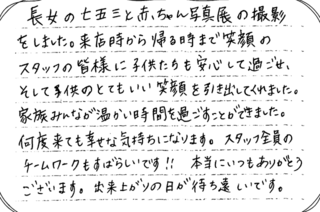 長女の七五三と赤ちゃん写真展の撮影
をしました。来店時から帰る時まで笑顔の
スタッフの皆様に子供たちも安心して過ごせ、
そして子供のとてもいい笑顔を引き出してくれました。
家族みんなが温かい時間を過ごすことができました。
何度来ても幸せな気持ちになります。スタッフ全員の
チームワークもすばらしいです!! 本当にいつもありがとう
ございます。出来上がりの日が待ち遠しいです。